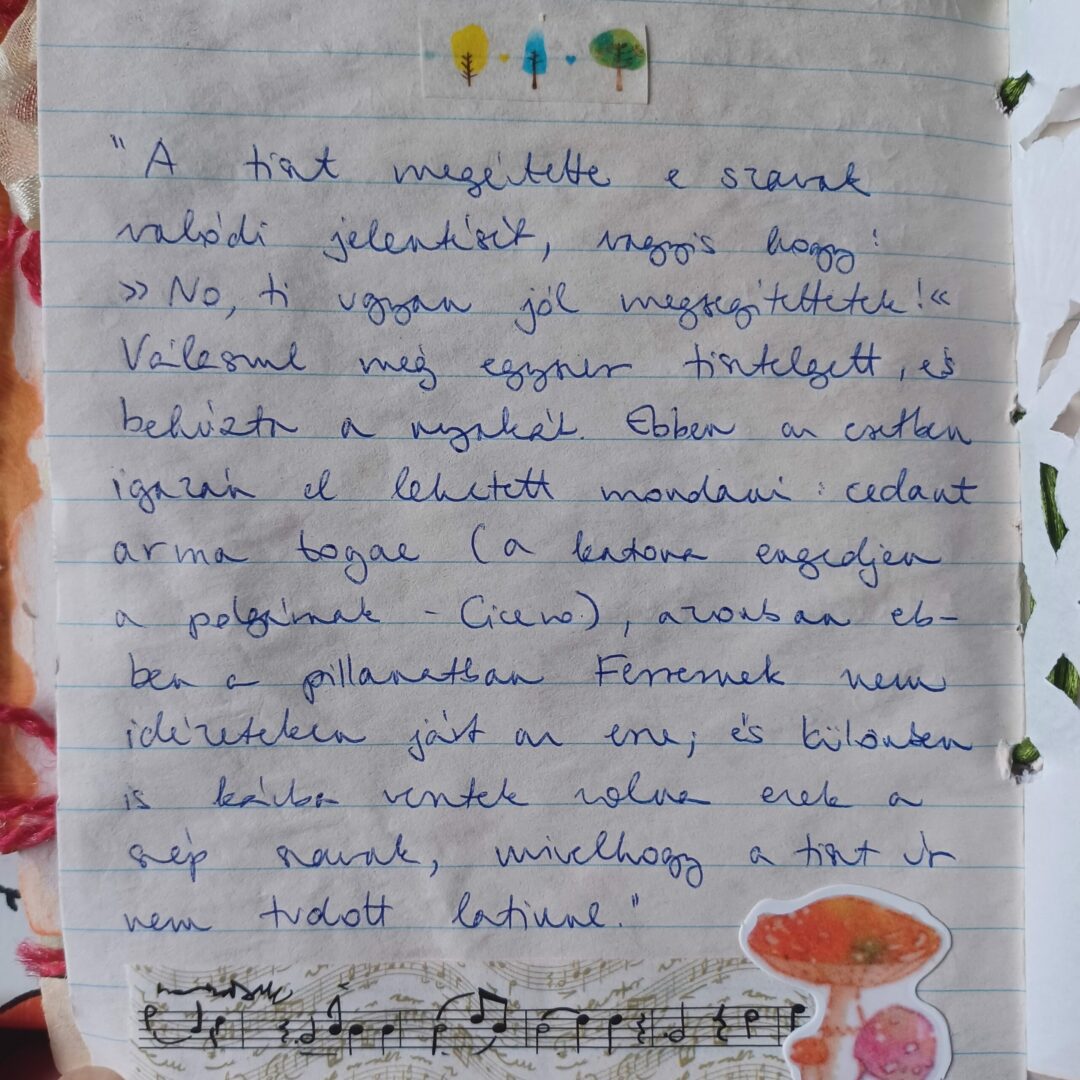 "A tiszt megértette e szavak
valódi jelentését, vagyis hogy:
»No, ti ugyan jól megsegítettetek!«
Válaszul még egyszer tisztelgett, és
behúzta a nyakát. Ebben az esetben
igazán el lehetett mondani: cedant
arma togae (a katona engedjen
a polgárnak - Cicero.), azonban eb-
ben a pillanatban Ferrernek nem
idézeteken járt az esze; és különben
is kárba vesztek volna ezek a
szép szavak, mivelhogy a tiszt úr
nem tudott latinul."